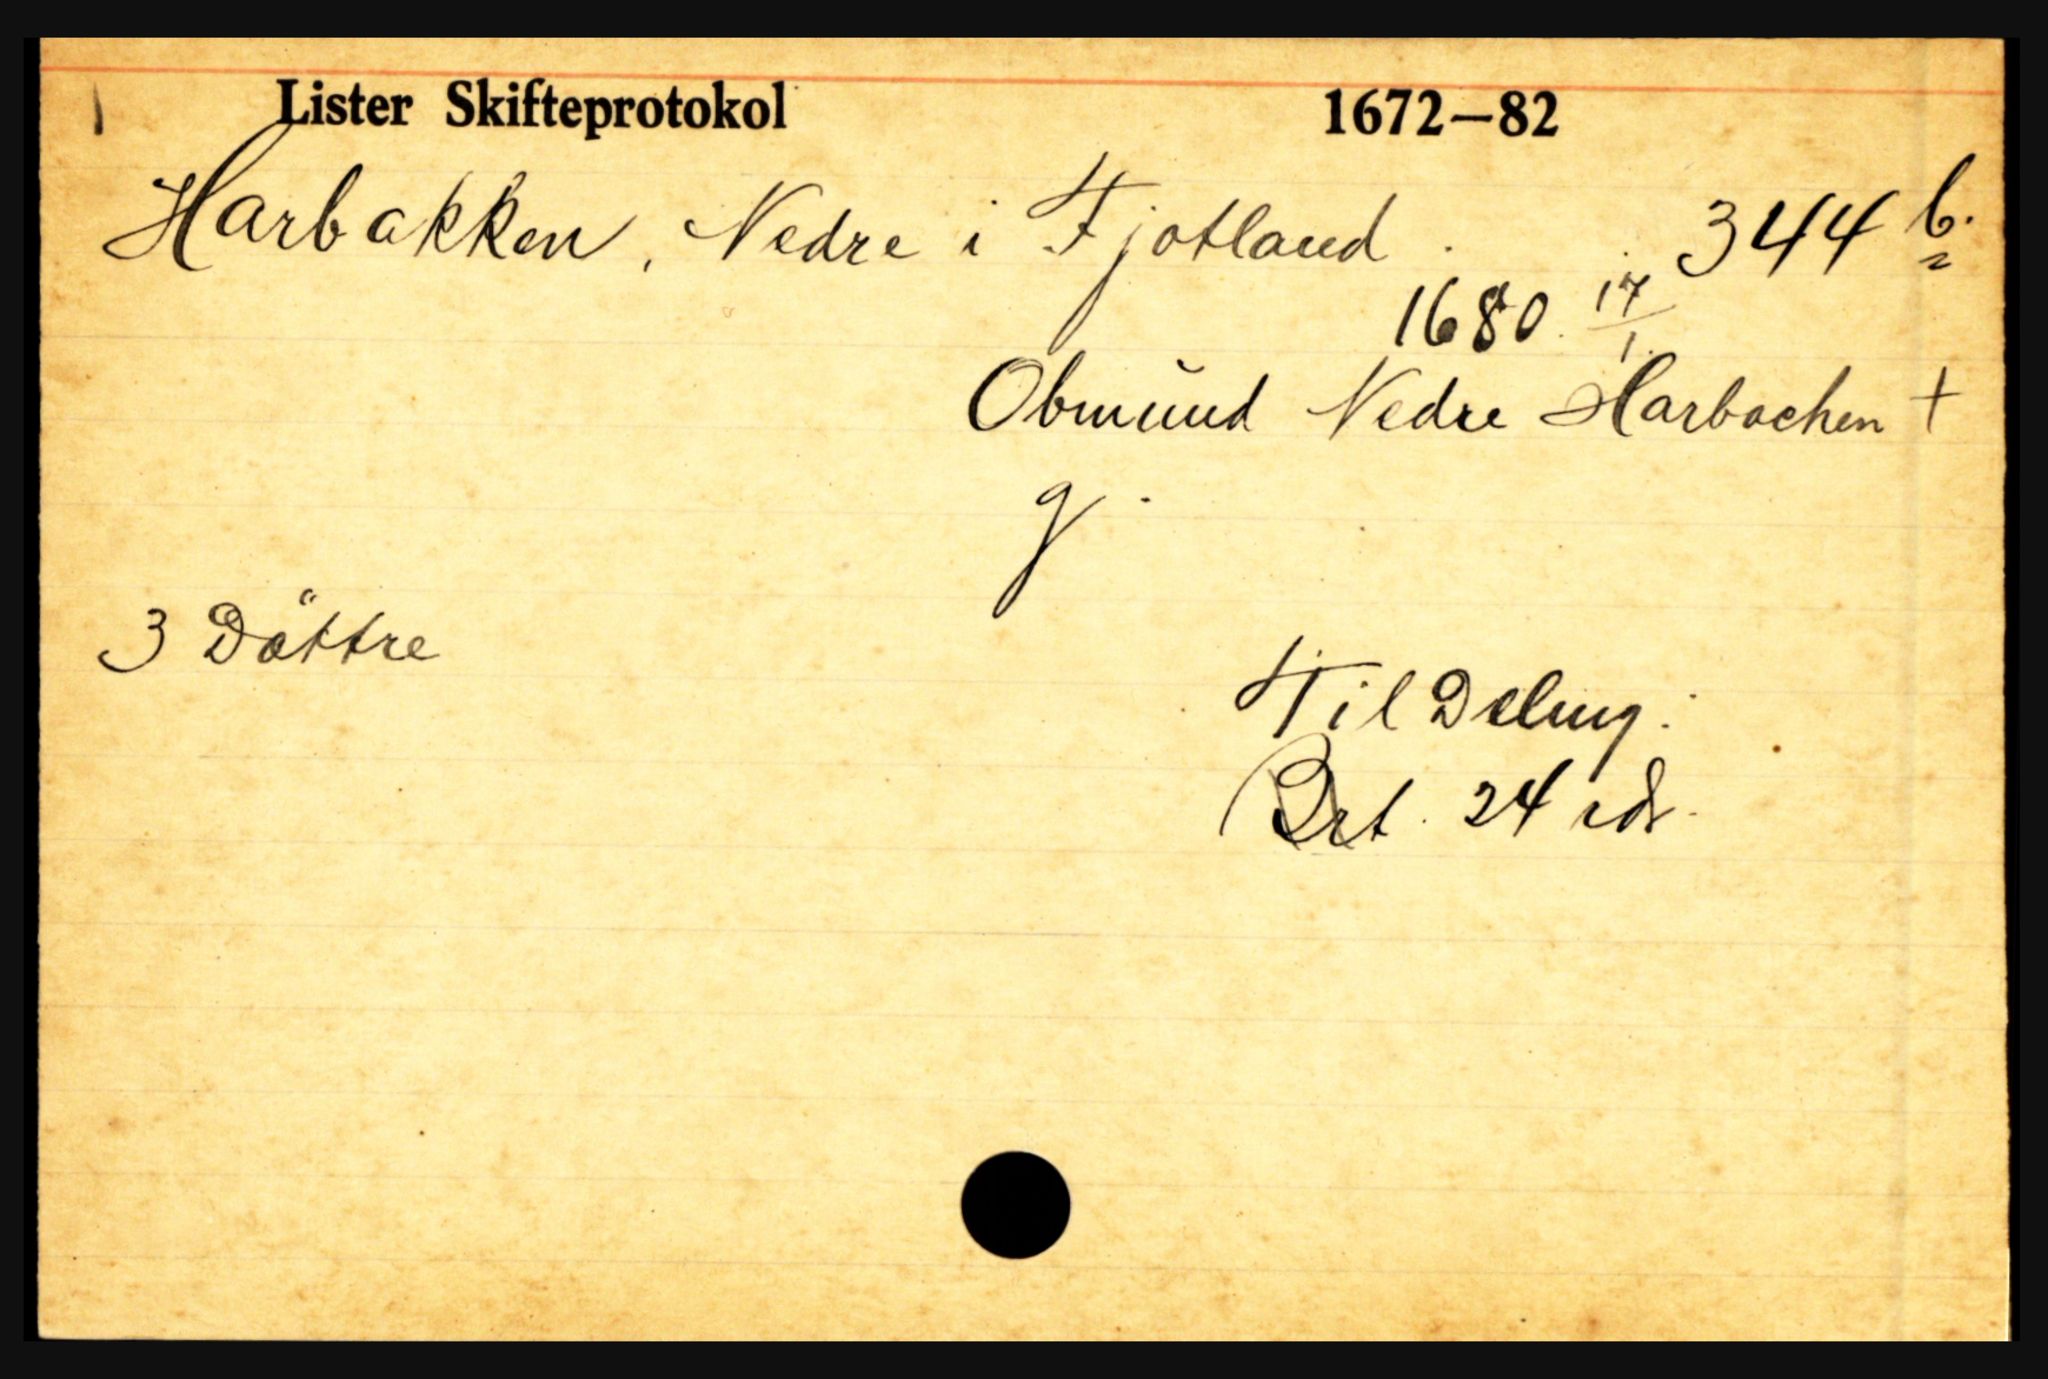 Lister Skifteprotokol 1672–82
Harbakken, Nedre i Fjotland. 344 b.
1680. 17/1.
Obmŭnd Nedre Harbachen +
g.
3 Döttre
Til Deling:
Brt. 24 rdr.